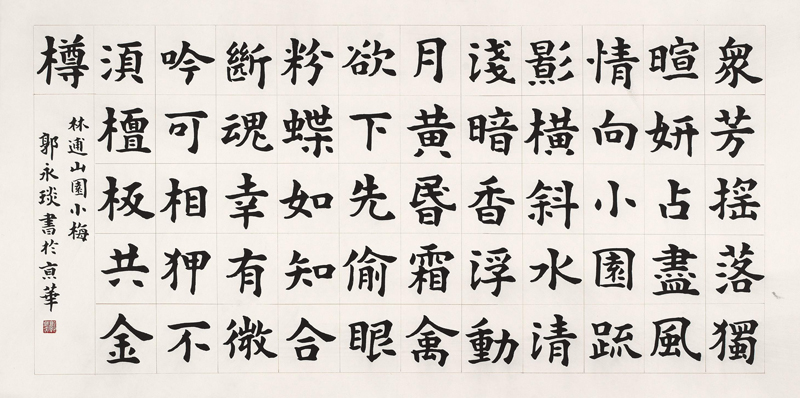 衆芳搖落獨
暄妍占盡風
情向小園疏
影橫斜水清
淺暗香浮動
月黃昏霜禽
欲下先偷眼
粉蝶如知合
斷魂幸有微
吟可相狎不
須檀板共金
樽
林逋山園小梅
郭永琰書於京華